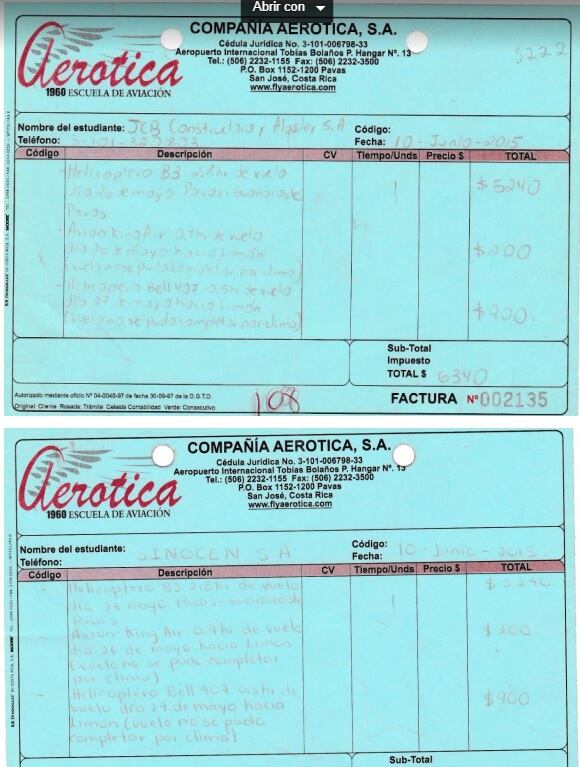 Abrir con
Aerotica
1960 ESCUELA DE AVIACIÓN
COMPAÑÍA AEROTICA, S.A.
Cédula Jurídica No. 3-101-006798-33
Aeropuerto Internacional Tobías Bolaños P. Hangar Nº. 13
Tel.: (506) 2232-1155 Fax: (506) 2232-3500
P.O. Box 1152-1200 Pavas
San José, Costa Rica
www.flyaerotica.com
3222
Nombre del estudiante: JCB Constructora y Alquiler S.A Código:
Teléfono: 3-101-327803 Fecha: 10 - Junio - 2015
Código Descripción CV Tiempo/Unds Precio $ TOTAL
- Helicoptero B3 2,8hr de vuelo
dia 26 de mayo Pavas-Guanacaste $5240
Pavas
- Avion King Air 0,4hr de vuelo
dia 26 de mayo hacia Limón $200
(vuelo no se pudo completar por clima)
- Helicoptero Bell 407 0,5hr de vuelo
dia 27 de mayo hacia Limón $900
(vuelo no se pudo completar por clima)
Sub-Total
Impuesto
TOTAL $ 6340
Autorizado mediante oficio Nº 04-0040-97 de fecha 30-09-97 de la D.G.T.D.
Original: Cliente Rosada: Trámite Celeste Contabilidad Verde: Consecutivo
108
FACTURA Nº 002135
Aerotica
1960 ESCUELA DE AVIACIÓN
COMPAÑÍA AEROTICA, S.A.
Cédula Jurídica No. 3-101-006798-33
Aeropuerto Internacional Tobías Bolaños P. Hangar Nº. 13
Tel.: (506) 2232-1155 Fax: (506) 2232-3500
P.O. Box 1152-1200 Pavas
San José, Costa Rica
www.flyaerotica.com
Nombre del estudiante: SINOCEN S A Código:
Teléfono: Fecha: 10 - Junio - 2015
Código Descripción CV Tiempo/Unds Precio $ TOTAL
- Helicoptero B3 2,8hr de vuelo $5240
dia 26 mayo Pavas-Guanacaste
Pavas
Avion King Air 0.4hr de vuelo $200
dia 26 de mayo hacia Limon
(vuelo no se pudo completar
por clima)
- Helicoptero Bell 407 0,5hr de $900
vuelo día 27 de mayo hacia
Limón (vuelo no se pudo
completar por clima)
Sub-Total